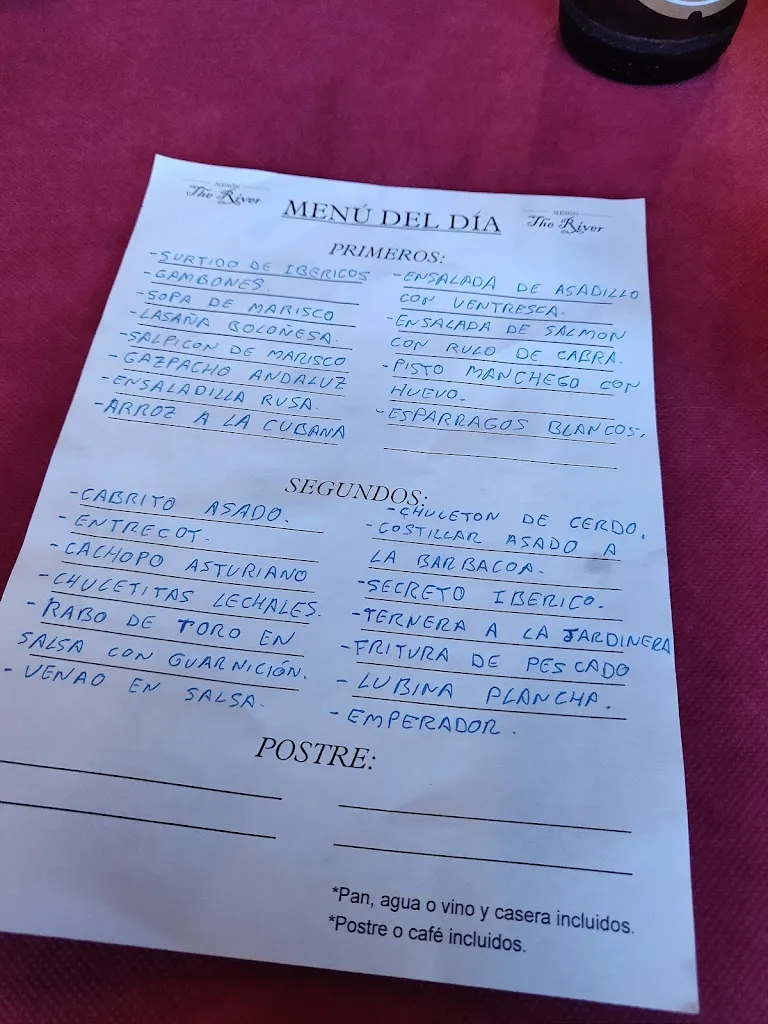 MESÓN
The River
MENÚ DEL DÍA
MESÓN
The River
PRIMEROS:
-SURTIDO DE IBERICOS
-GAMBONES.
-SOPA DE MARISCO
-LASAÑA BOLOÑESA.
-SALPICON DE MARISCO
-GAZPACHO ANDALUZ
-ENSALADILLA RUSA.
-ARROZ A LA CUBANA
-ENSALADA DE ASADILLO
CON VENTRESCA.
-ENSALADA DE SALMON
CON RULO DE CABRA.
-PISTO MANCHEGO CON
HUEVO.
-ESPARRAGOS BLANCOS.
SEGUNDOS:
-CABRITO ASADO.
-ENTRECOT.
-CACHOPO ASTURIANO
-CHULETITAS LECHALES.
-RABO DE TORO EN
SALSA CON GUARNICIÓN.
-VENAO EN SALSA.
-CHULETON DE CERDO.
-COSTILLAR ASADO A
LA BARBACOA.
-SECRETO IBERICO.
-TERNERA A LA JARDINERA
-FRITURA DE PESCADO
-LUBINA PLANCHA.
-EMPERADOR.
POSTRE:
*Pan, agua o vino y casera incluidos.
*Postre o café incluidos.